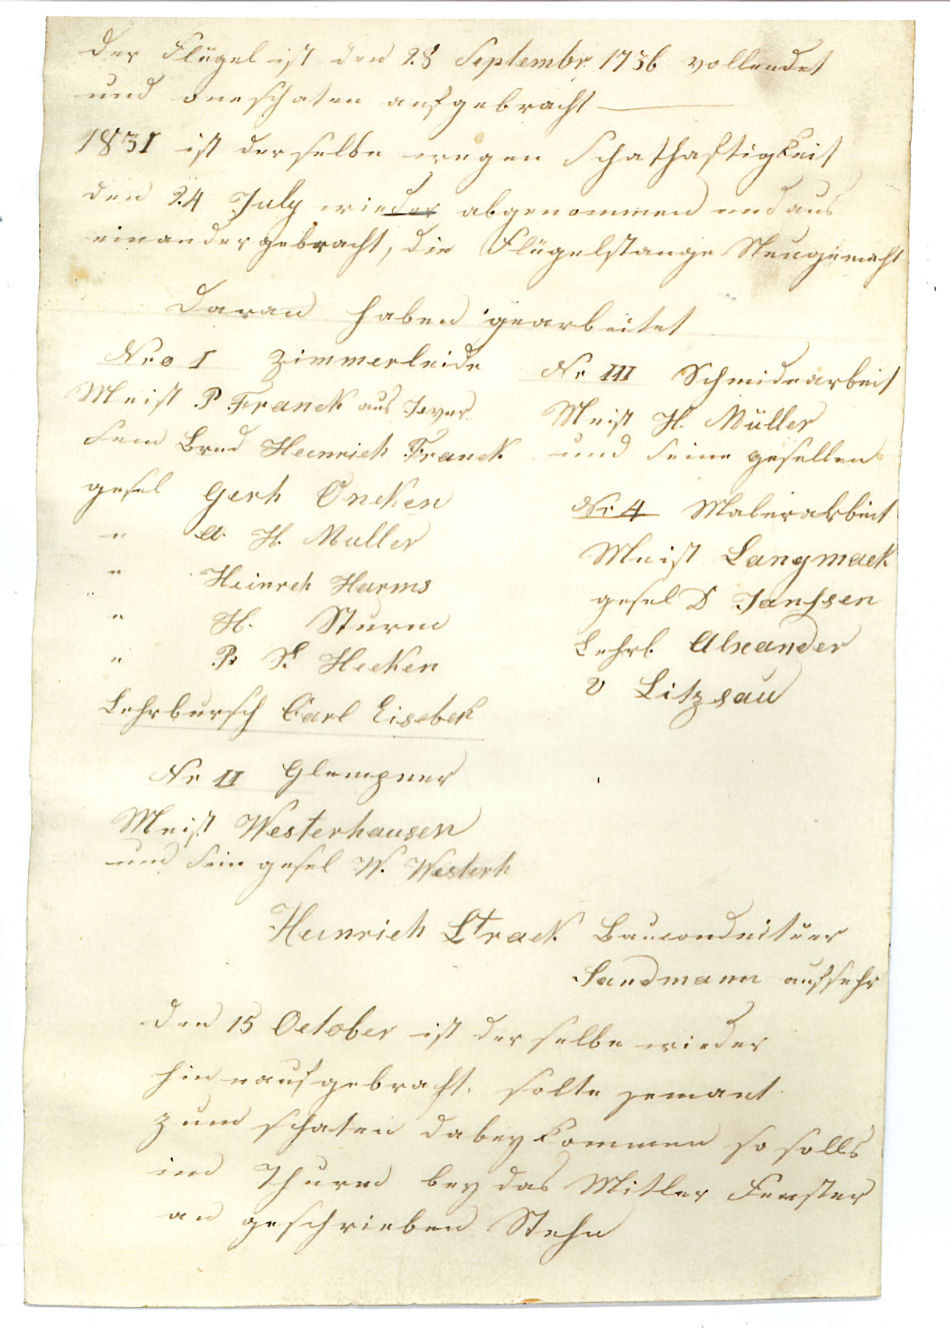 Der Flügel ist den 28 Septembr 1736 vollendet
und oneschaten aufgebracht
1831 ist derselbe wegen Schathaftigkeit
den 24 July wieder abgenommen und aus
einander gebracht, die Flügelstange Neugemacht
Daran haben gearbeitet
Nro I Zimmerleide
Meist P Franck aus Jever
sein Brud Heinrich Franck
gesel Gerh Oncken
" A. H. Muller
" Heinrch Harms
" H. Sturm
" P. S. Hecken
Lehrbursch Carl Eisebek
Nr II Glempner
Meist Westerhausen
und sein gesel W. Westerh
Nr III Schmidearbeit
Meist H. Müller
und seine gesellen
Nr 4 Malerarbeit
Meist Langmack
gesel D Janssen
Lehrb. Alxander
v Litzsau
Heinrich Strack Bauconducteur
Sandmann aufsehr
den 15 October ist der selbe wieder
hinnaufgebracht. solte jemant
zum schaten dabey kommen so solls
im Thurm bey das Mitler Fenster
an geschrieben Stehn